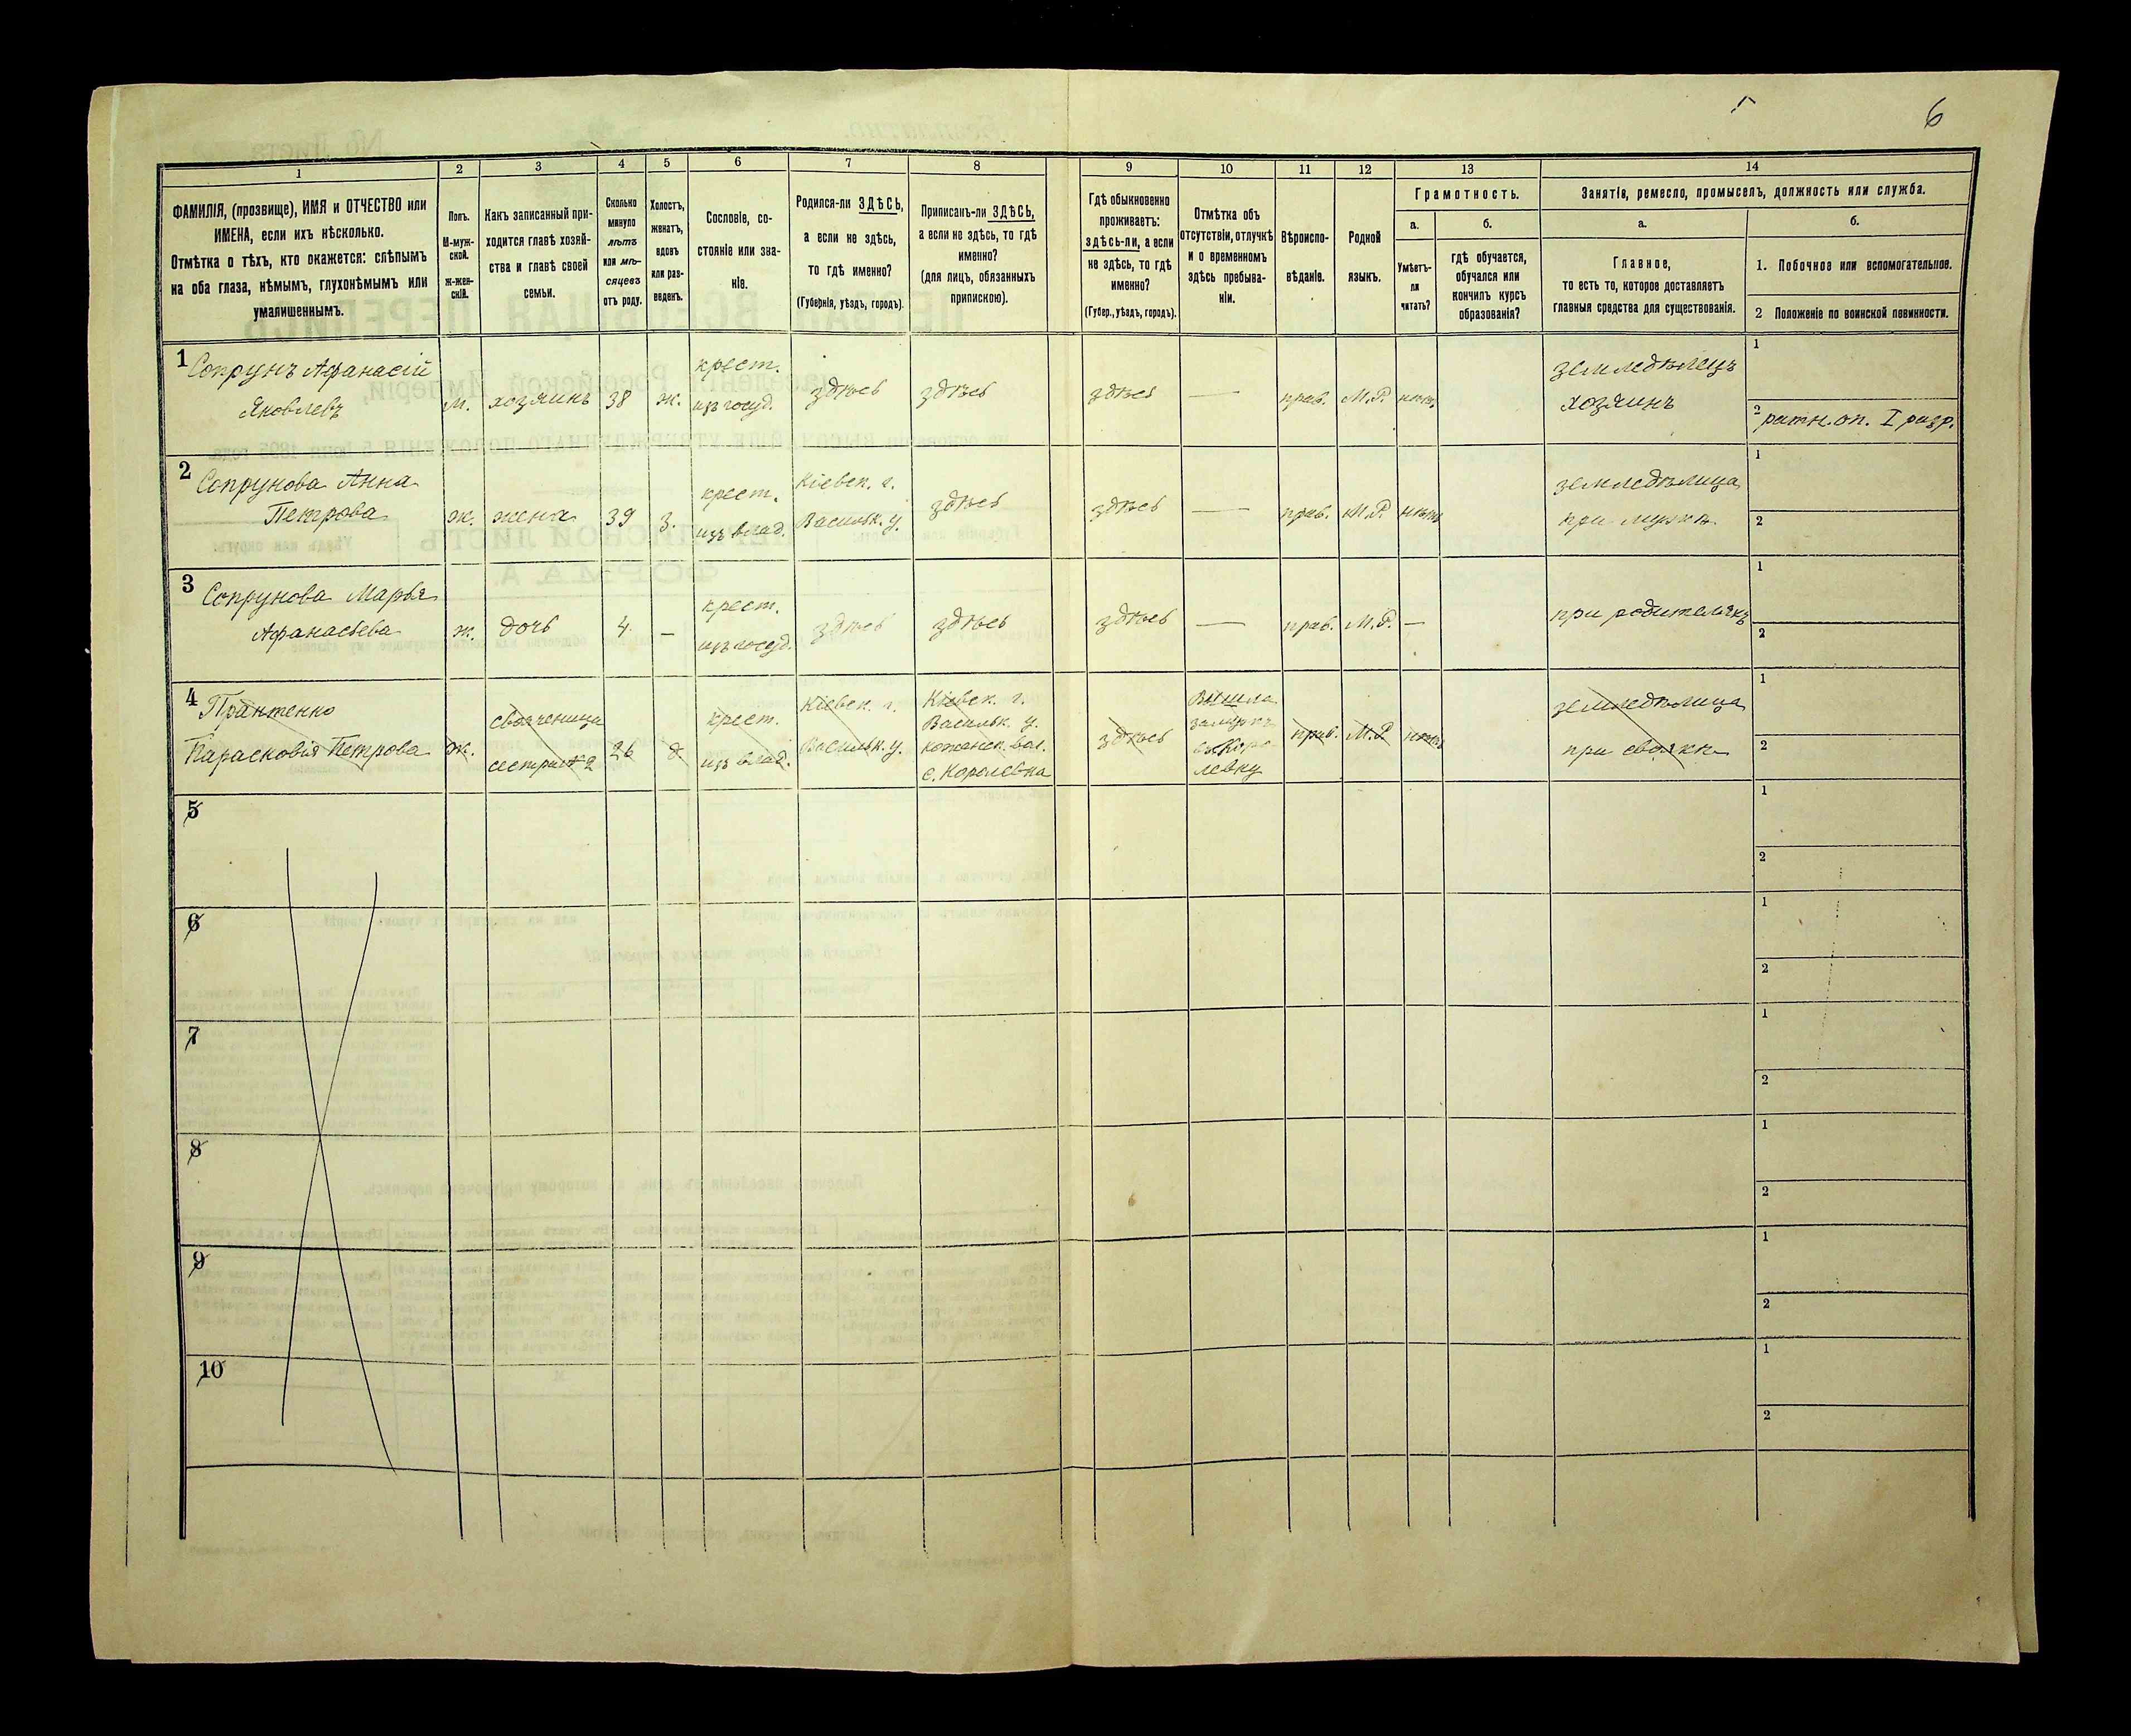 6
1
2
3
4
5
6
7
8
9
10
11
12
13
14
ФАМИЛІЯ, (прозвище), ИМЯ и ОТЧЕСТВО или
ИМЕНА, если ихъ нѣсколько.
Отмѣтка о тѣхъ, кто окажется: слѣпымъ
на оба глаза, нѣмымъ, глухонѣмымъ или
умалишеннымъ.
Полъ.
М-муж-
ской.
Ж-жен-
скій.
Какъ записанный при-
ходится главѣ хозяй-
ства и главѣ своей
семьи.
Сколько
минуло
лѣтъ
или мѣ-
сяцевъ
отъ роду.
Холостъ,
женатъ,
вдовъ
или раз-
веденъ.
Сословіе, со-
стояніе или зва-
ніе.
Родился-ли ЗДѢСЬ,
а если не здѣсь,
то гдѣ именно?
(Губернія, уѣздъ, городъ).
Приписанъ-ли ЗДѢСЬ,
а если не здѣсь, то гдѣ
именно?
(для лицъ, обязанныхъ
припискою).
Гдѣ обыкновенно
проживаетъ:
здѣсь-ли, а если
не здѣсь, то гдѣ
именно?
(Губер., уѣздъ, городъ).
Отмѣтка объ
отсутствіи, отлучкѣ
и о временномъ
здѣсь пребыва-
ніи.
Вѣроиспо-
вѣданіе.
Родной
языкъ.
Грамотность.
а.
Умѣетъ-
ли
читать?
б.
гдѣ обучается,
обучался или
кончилъ курсъ
образованія?
Занятія, ремесло, промыселъ, должность или служба.
а.
Главное,
то есть то, которое доставляетъ
главныя средства для существованія.
б.
1. Побочное или вспомогательное.
2 Положеніе по воинской повинности.
1 Сопрунъ Афанасій
Яковлевъ
м.
хозяинъ
38
ж.
крест.
изъ госуд.
здѣсь
здѣсь
здѣсь
—
прав.
М.Р.
нѣтъ
земледѣлецъ
хозяинъ
1
2 ратн. оп. I разр.
2 Сопрунова Анна
Петрова
ж.
жена
39
з.
крест.
изъ влад.
Кіевск. г.
Васильк. у.
здѣсь
здѣсь
—
прав.
М.Р.
нѣтъ
земледѣлица
при мужѣ
1
2
3 Сопрунова Марья
Афанасьева
ж.
дочь
4
—
крест.
изъ госуд.
здѣсь
здѣсь
здѣсь
—
прав.
М.Р.
—
при родителяхъ
1
2
4
Парасковія Петрова
ж.
свояченица
сестра № 2
26
д.
крест.
изъ влад.
Кіевск. г.
Васильк. у.
Кіевск. г.
Васильк. у.
кожанск. вол.
с. Королевка
здѣсь
Вышла
замужъ
въ Коро-
левку
прав.
М.Р.
нѣтъ
земледѣлица
при своякѣ
1
2
5
1
2
6
1
2
7
1
2
8
1
2
9
1
2
10
1
2